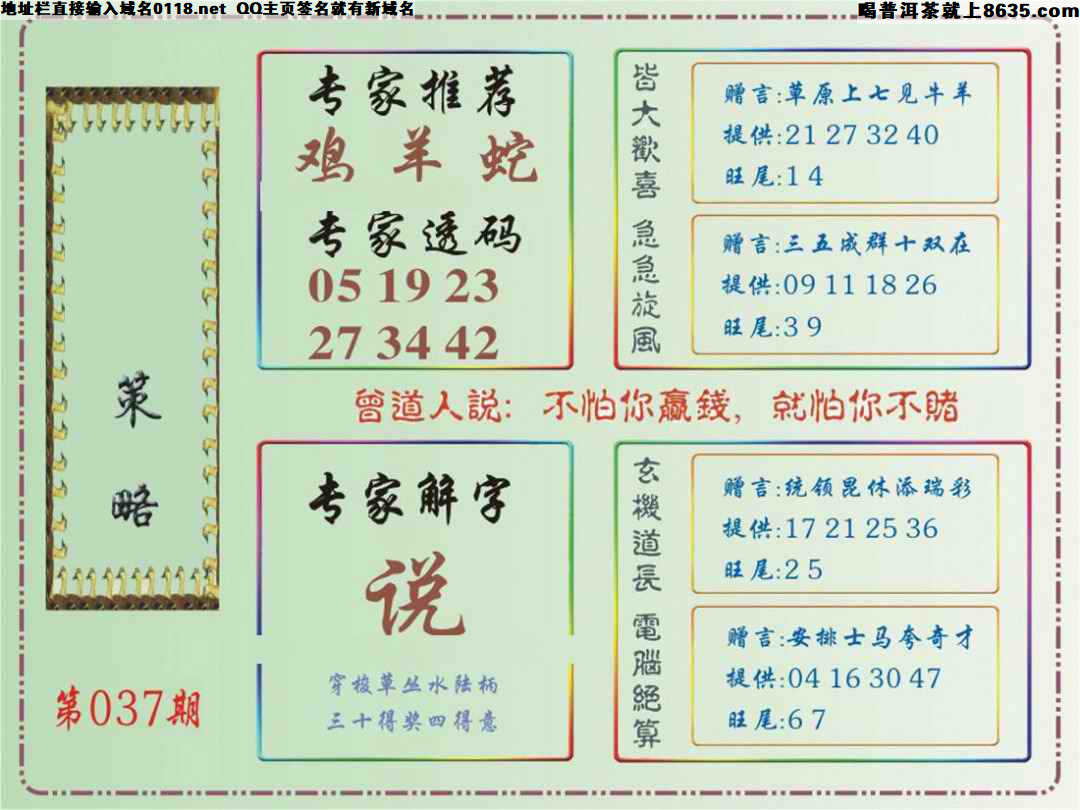 地址栏直接输入域名0118.net QQ主页签名就有新域名
喝普洱茶就上8635.com
策略
第037期
专家推荐
鸡 羊 蛇
专家透码
05 19 23
27 34 42
皆大歡喜
赠言:草原上七见牛羊
提供:21 27 32 40
旺尾:1 4
急急旋風
赠言:三五成群十双在
提供:09 11 18 26
旺尾:3 9
曾道人説: 不怕你贏錢, 就怕你不賭
专家解字
说
穿梭草丛水陆柄
三十得奖四得意
玄機道長
赠言:统领昆休添瑞彩
提供:17 21 25 36
旺尾:2 5
電腦絕算
赠言:安排士马夸奇才
提供:04 16 30 47
旺尾:6 7